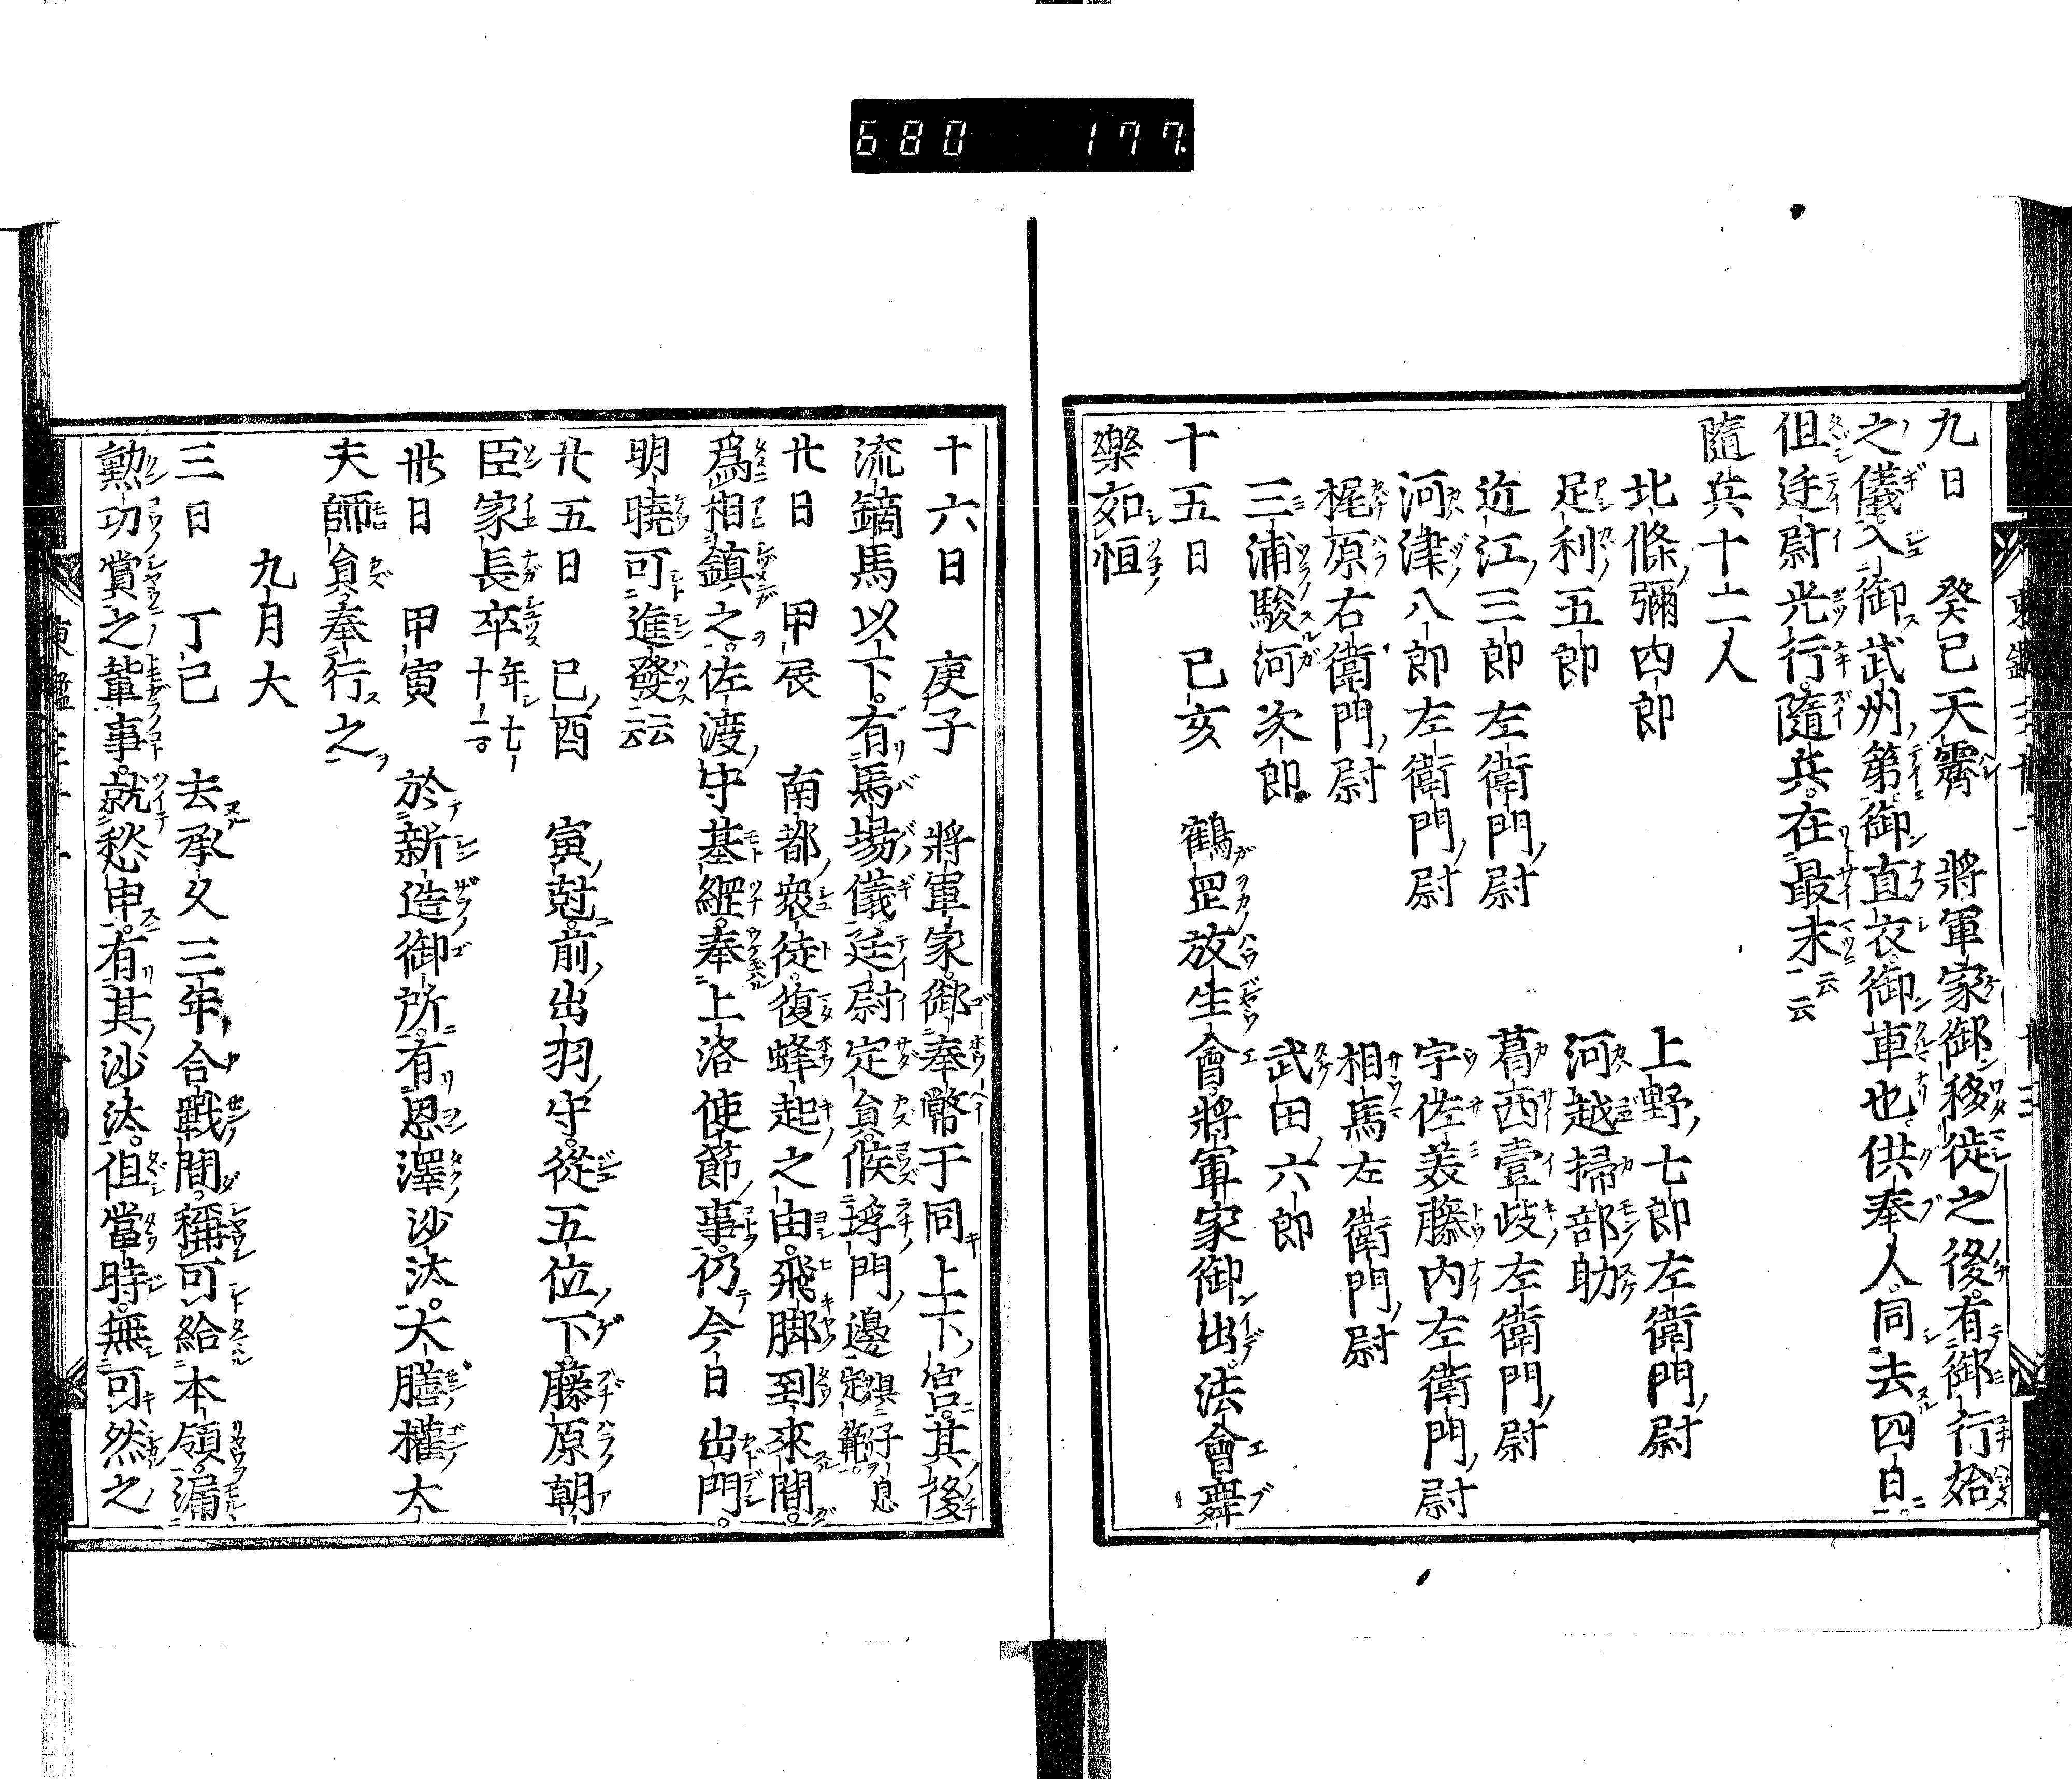 680 177.
九日　癸巳天霽　將軍家御移徙之後有御行始
之儀入御武州第御直衣御車也供奉人同去四日
但廷尉光行隨兵在最末云云
隨兵十二人
北條彌四郎　上野七郎左衛門尉
足利五郎　河越掃部助
近江三郎左衛門尉　葛西壹岐左衛門尉
河津八郎左衛門尉　宇佐美藤内左衛門尉
梶原右衛門尉　相馬左衛門尉
三浦駿河次郎　武田六郎
十五日　己亥　鶴罡放生會將軍家御出法會舞
樂如恒
十六日　庚子　將軍家御奉幣于同上下宮其後
流鏑馬以下有馬場儀廷尉定員候埒門邊具子息定範
廿日　甲辰　南都衆徒復蜂起之由飛脚到來間
爲相鎮之佐渡守基綱奉上洛使節事仍今日出門
明曉可進發云云
廿五日　己酉　寅尅前出羽守從五位下藤原朝
臣家長卒年七十一
卅日　甲寅　於新造御所有恩澤沙汰大膳權大
夫師員奉行之
九月大
三日　丁巳　去承久三年合戰間稱可給本領漏
勲功賞之輩事就愁申有其沙汰但當時無可然之